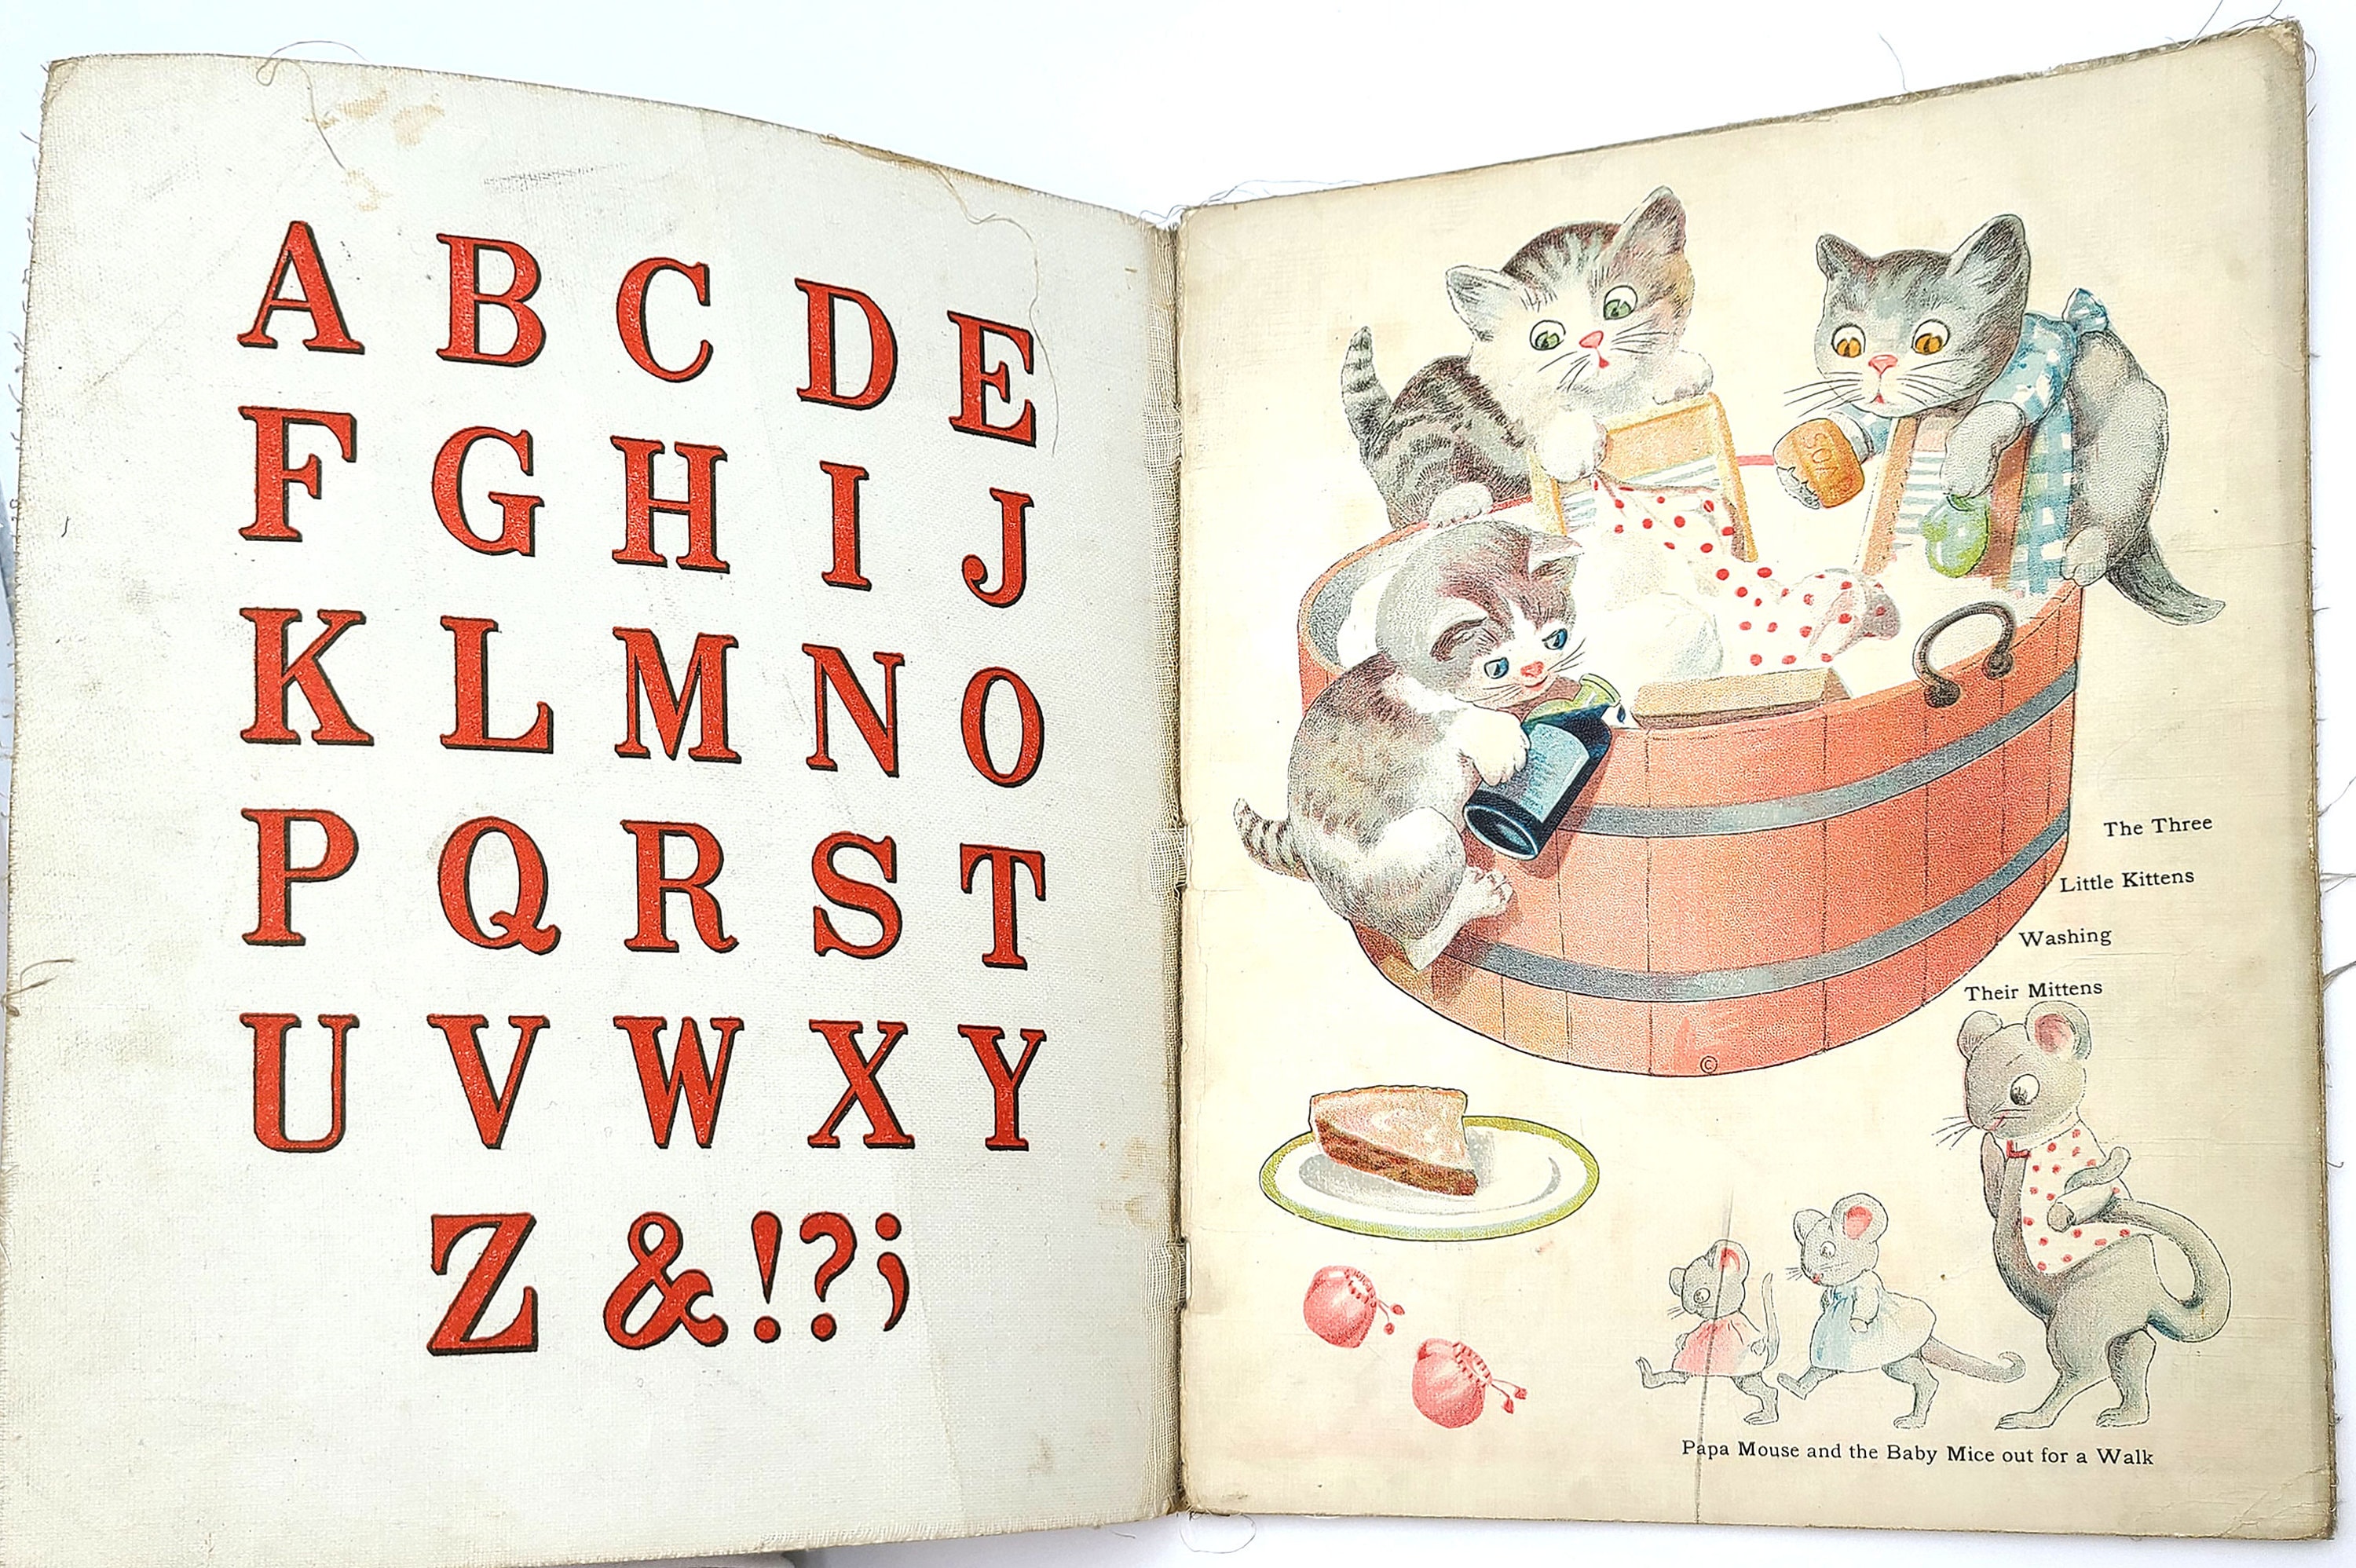 A B C D E
F G H I J
K L M N O
P Q R S T
U V W X Y
Z & ! ? ;
SOAP
The Three
Little Kittens
Washing
Their Mittens
©
Papa Mouse and the Baby Mice out for a Walk